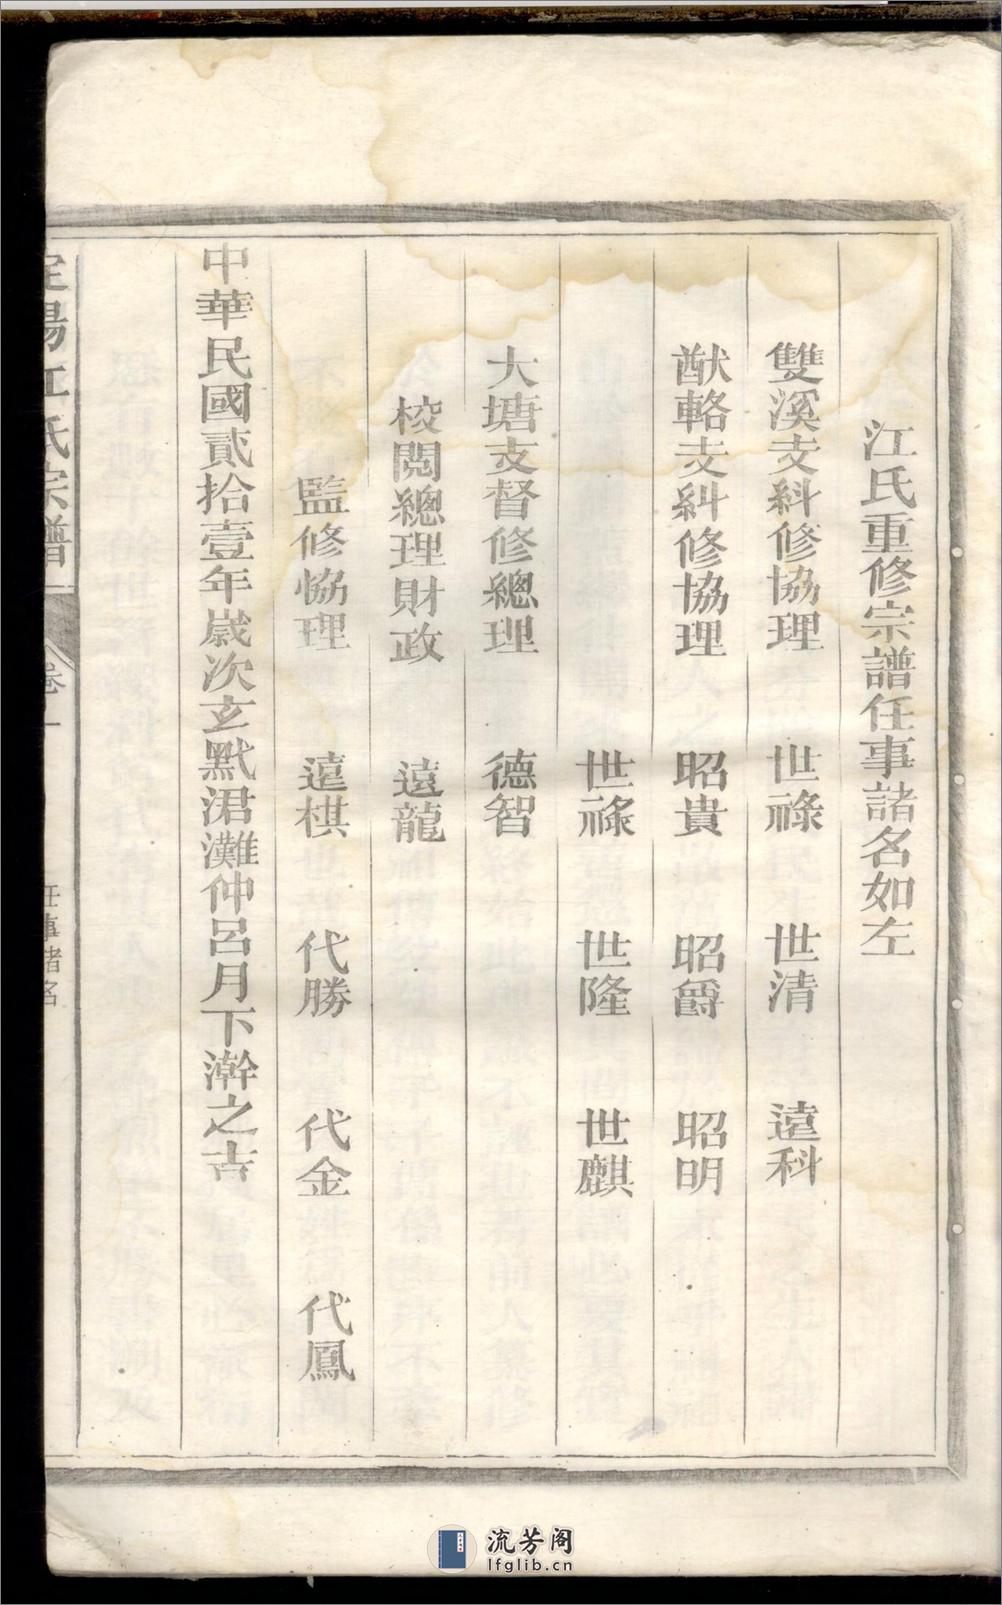 江氏重修宗譜任事諸名如左
雙溪支糾修協理 世祿 世清 遠科
猷輅支糾修協理 昭貴 昭爵 昭明
世祿 世隆 世麒
大塘支督修總理 德智
校閱總理財政 遠龍
監修協理 遠棋 代勝 代金 代鳳
中華民國貳拾壹年歲次玄黓涒灘仲呂月下澣之吉
陽江氏宗譜
卷一
任事諸名
流芳阁
lfglib.cn